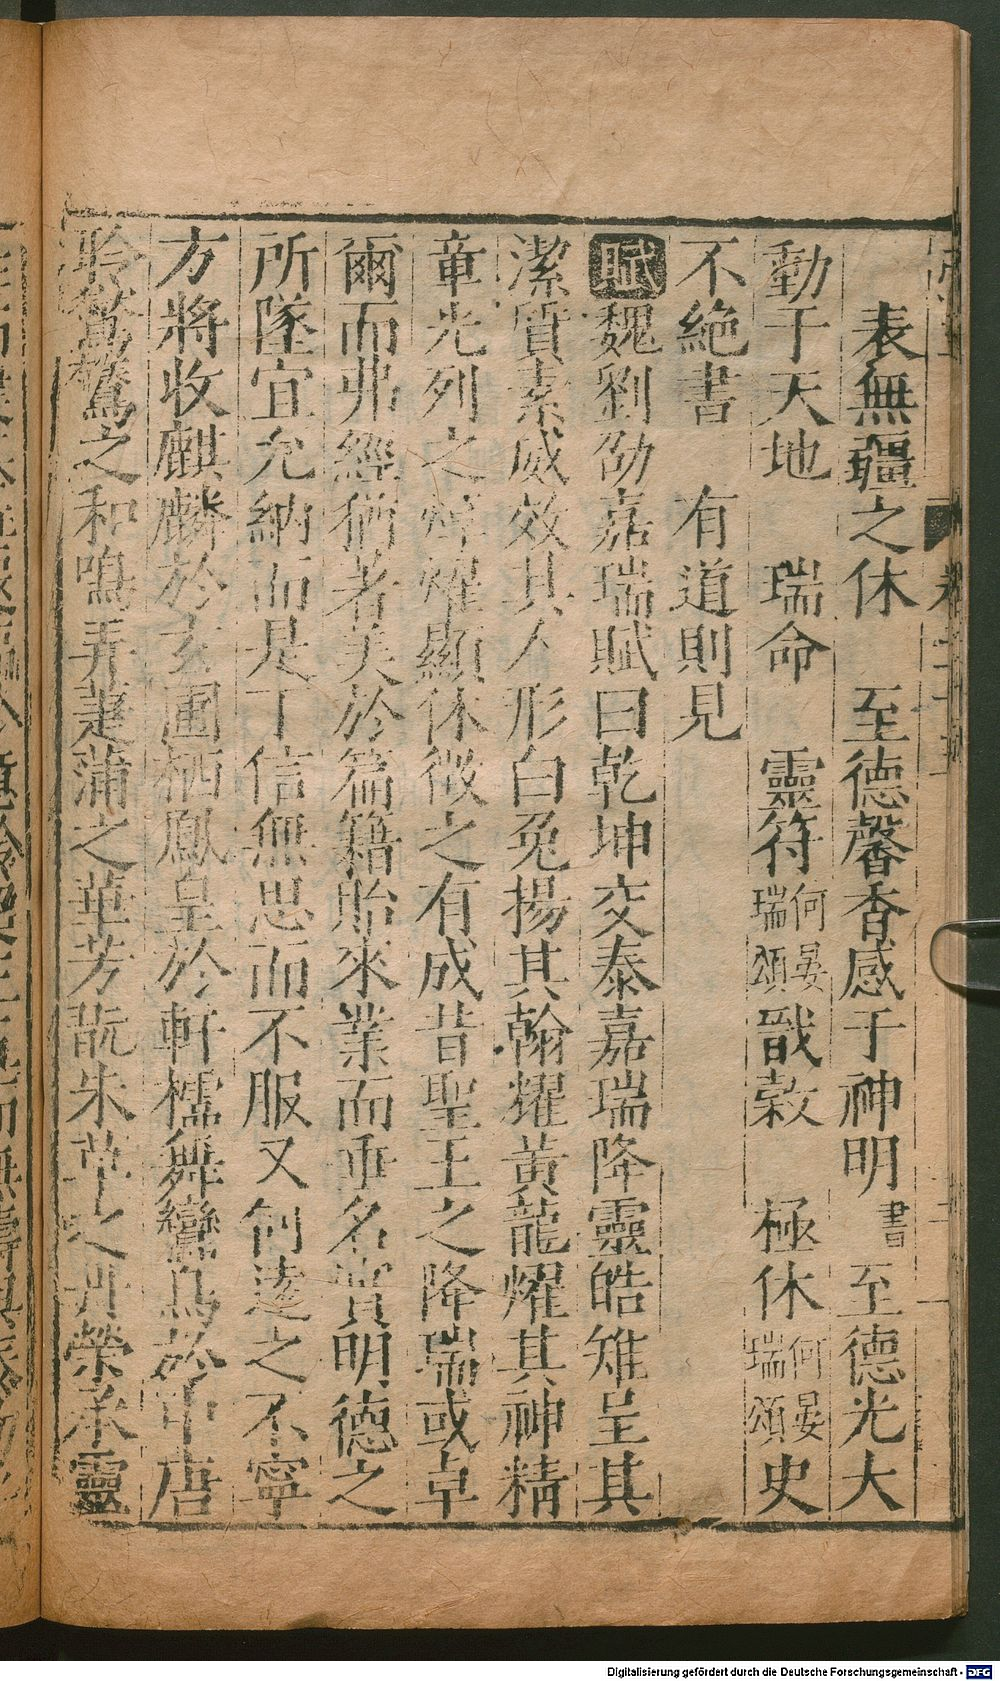 表無疆之休　至德馨香感于神明書　至德光大
動于天地　瑞命　靈符何晏瑞頌戩穀　極休何晏瑞頌史
不絶書　有道則見
賦魏劉劭嘉瑞賦曰乾坤交泰嘉瑞降靈皓雉呈其
潔質素威效其人形白兔揚其翰耀黃龍耀其神精
章光列之焯耀顯休徵之有成昔聖王之降瑞或卓
爾而弗經猶著美於篇籍貽來業而垂名實明德之
所墜宜允納而是丁信無思而不服又何遠之不寧
方將收麒麟於玄圃栖鳳皇於軒櫺舞鸞鳥於中唐
聆鸑鷟之和鳴弄萐蒲之華芳翫朱草之丹榮承靈
Digitalisierung gefördert durch die Deutsche Forschungsgemeinschaft - DFG